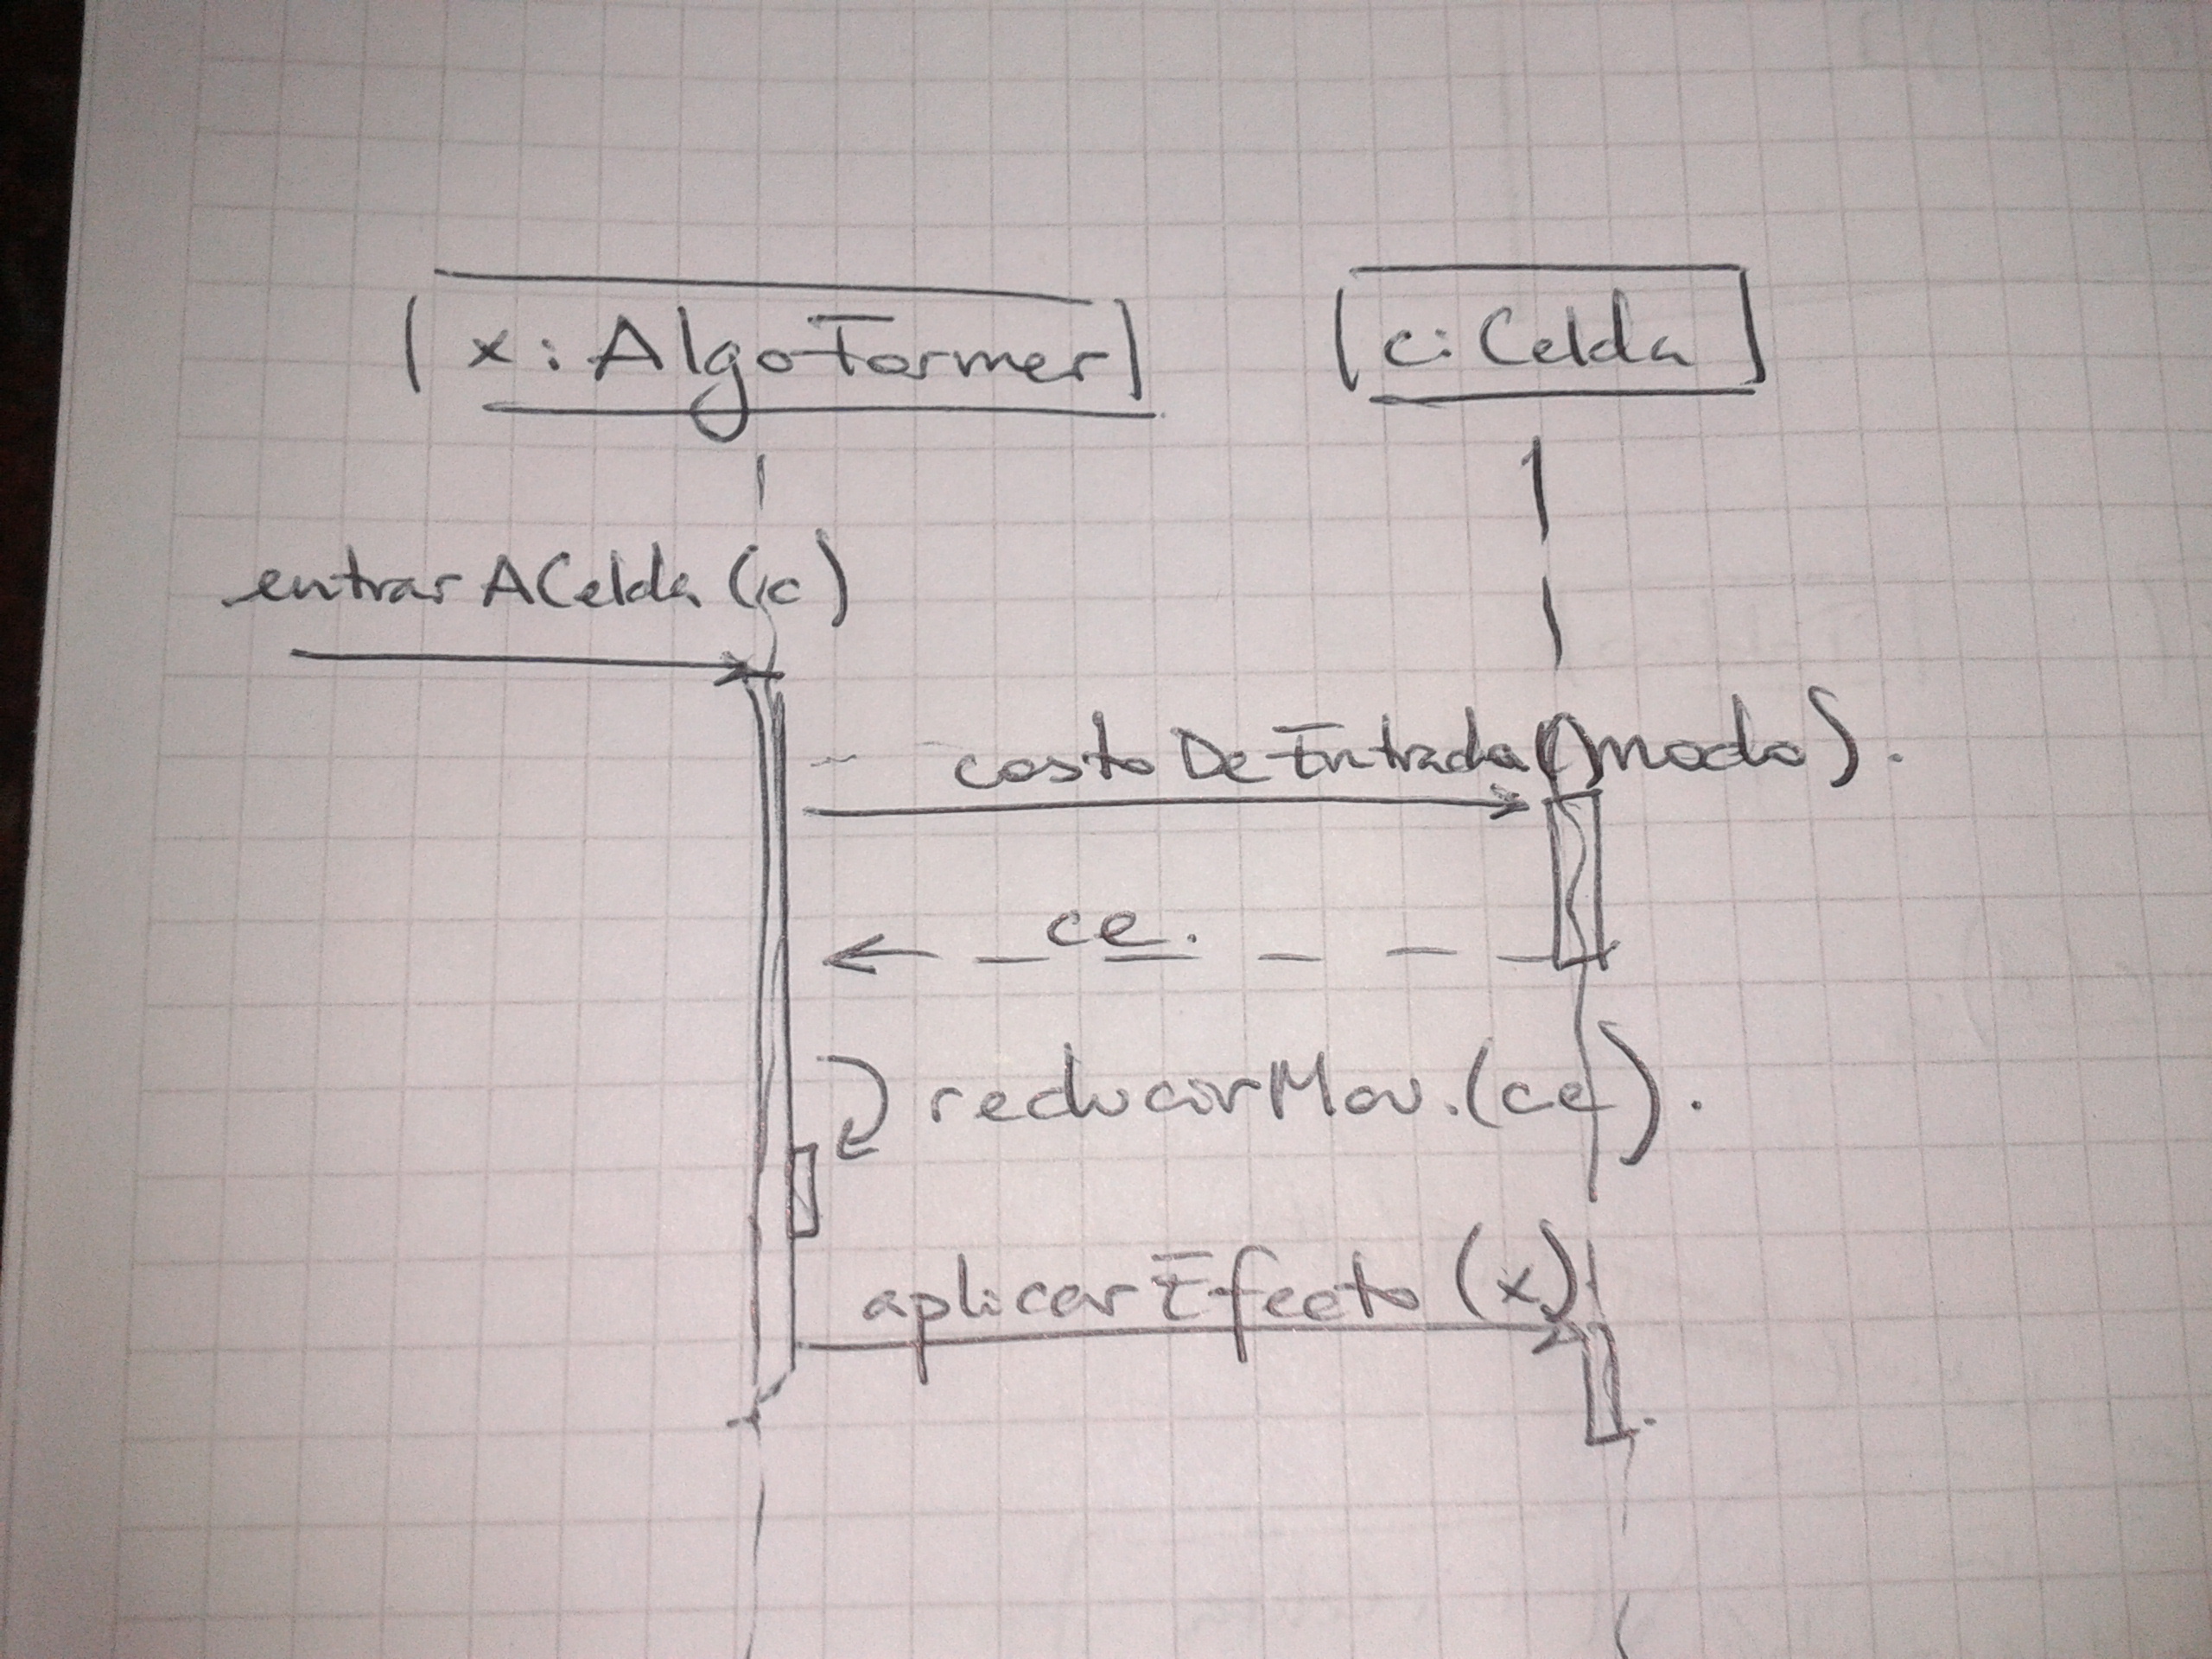 x: AlgoFormer
c: Celda
entrarACelda (c)
costoDeEntrada(modo).
ce.
reducirMov.(ce).
aplicarEfecto (x)